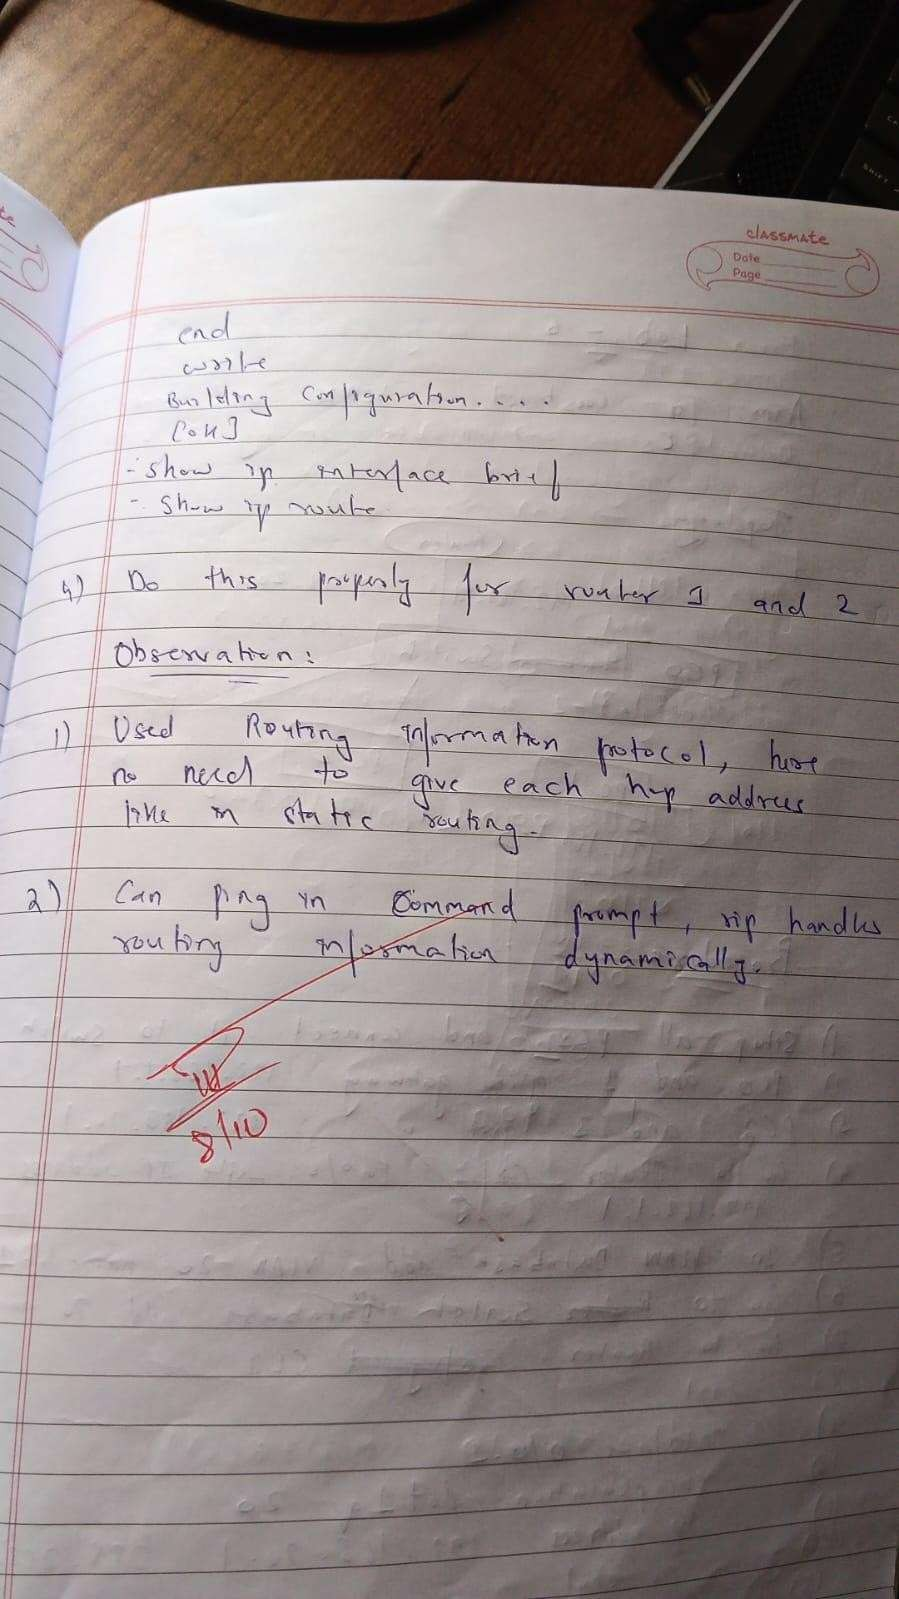 classmate
Date
Page
end
write
Building Configuration....
[OK]
- show ip interface brief
- show ip route
4) Do this properly for router 1 and 2
Observation:
1) Used Routing information protocol, here
no need to give each hop address
like in static routing.
2) Can ping in Command prompt, rip handles
routing information dynamically.
8/10